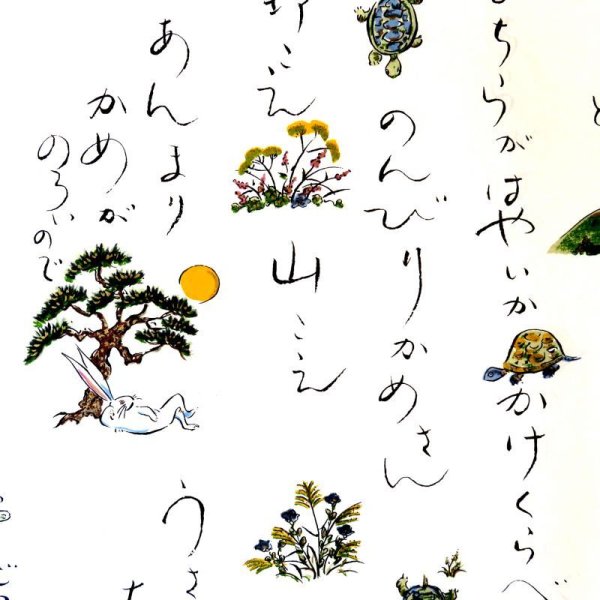 ちらがはやいか かけくらべ
のんびりかめさん
野こえ 山こえ
あんまり
かめが
のろいので
うさ